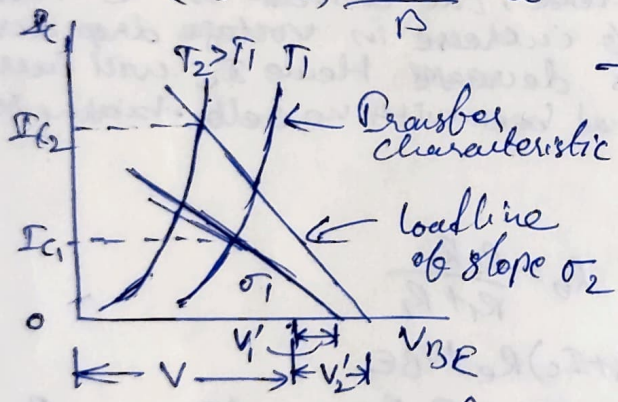 β
I_C
T₂>T₁ T₁
Transfer
characteristic
I_C₂
loadline
of slope σ₂
I_C₁
σ₁
0
V₁' V_BE
V V₂'